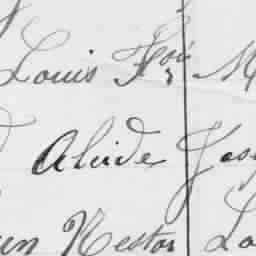 Louis Fçois M
Alcide Jos
Nestor La